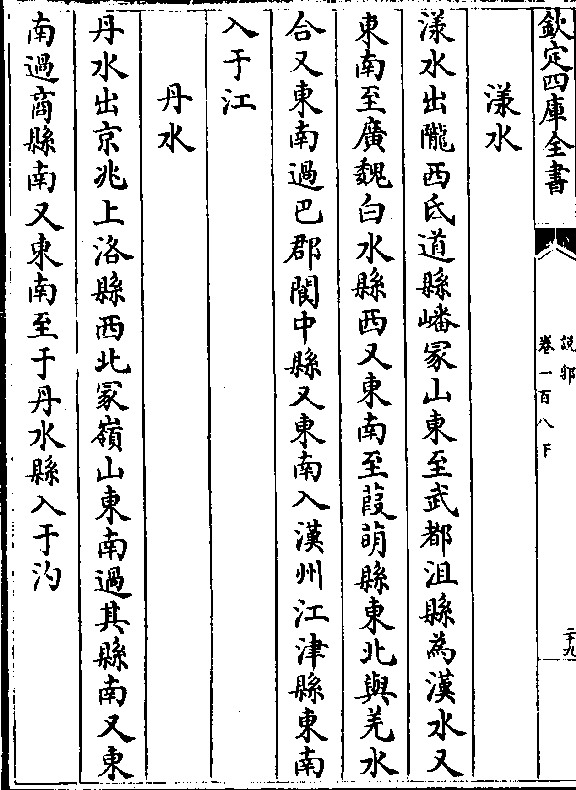 欽定四庫全書
說郛
卷一百八下
二十九
漾水
漾水出隴西氐道縣嶓冢山東至武都沮縣為漢水又
東南至廣魏白水縣西又東南至葭萌縣東北與羌水
合又東南過巴郡閬中縣又東南入漢州江津縣東南
入于江
丹水
丹水出京兆上洛縣西北冢嶺山東南過其縣南又東
南過商縣南又東南至于丹水縣入于汋